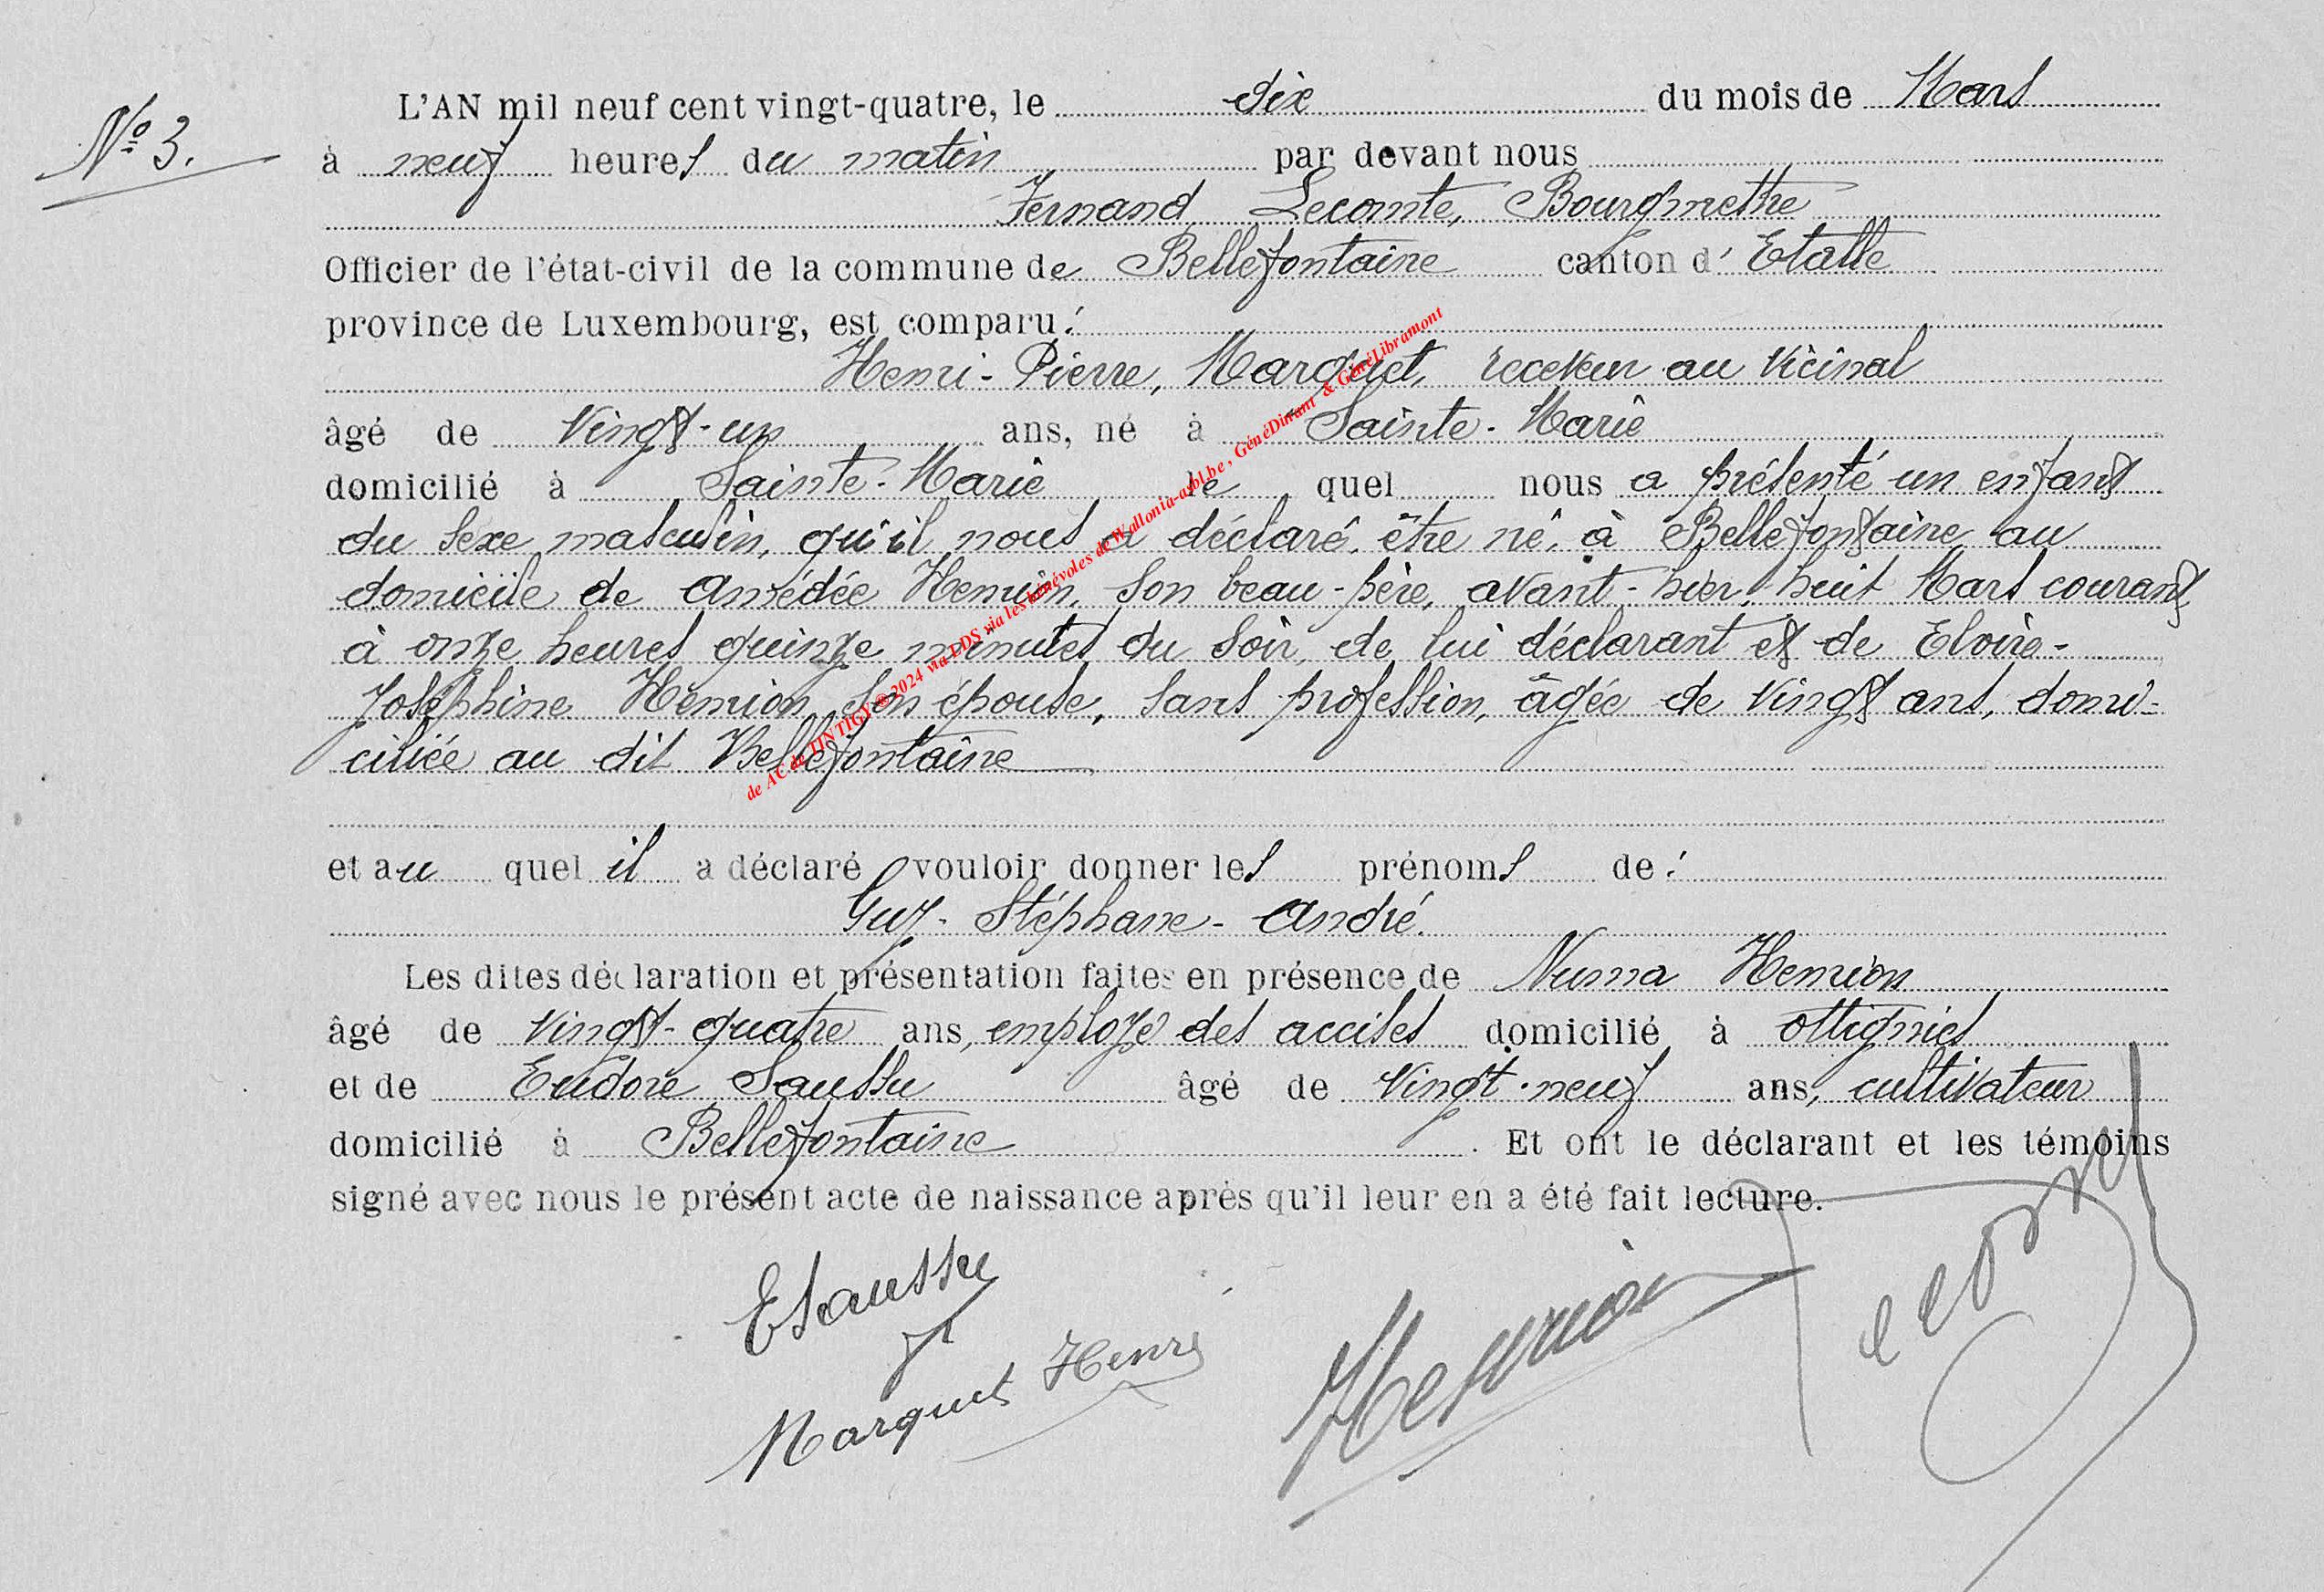 N° 3.
L'AN mil neuf cent vingt-quatre, le dix du mois de Mars
à neuf heures du matin par devant nous
Fernand Lecomte, Bourgmestre
Officier de l'état-civil de la commune de Bellefontaine canton d' Etalle
province de Luxembourg, est comparu :
Henri-Pierre, Marquet, receveur au vicinal
âgé de vingt-un ans, né à Sainte-Marie
domicilié à Sainte-Marie le quel nous a présenté un enfant
du sexe masculin, qu'il nous a déclaré, être né, à Bellefontaine au
domicile de Amédée Henrion, son beau-père, avant-hier, huit Mars courant
à onze heures quinze minutes du soir, de lui déclarant et de Elvire-
Joséphine Henrion son épouse, sans profession, âgée de vingt ans, domi-
ciliée au dit Bellefontaine
et au quel il a déclaré vouloir donner les prénoms de :
Guy-Stéphane-André.
Les dites déclaration et présentation faites en présence de Numa Henrion
âgé de vingt-quatre ans, employé des accises domicilié à Ottignies
et de Eudore Saussu âgé de vingt-neuf ans, cultivateur
domicilié à Bellefontaine. Et ont le déclarant et les témoins
signé avec nous le présent acte de naissance après qu'il leur en a été fait lecture.
ESaussu
Marquet Henri
Henrion
Lecomte
de AC de TINTIGY © 2024 via LDS via les bénévoles de Wallonia-asbl.be , GénéDinant & GénéLibramont